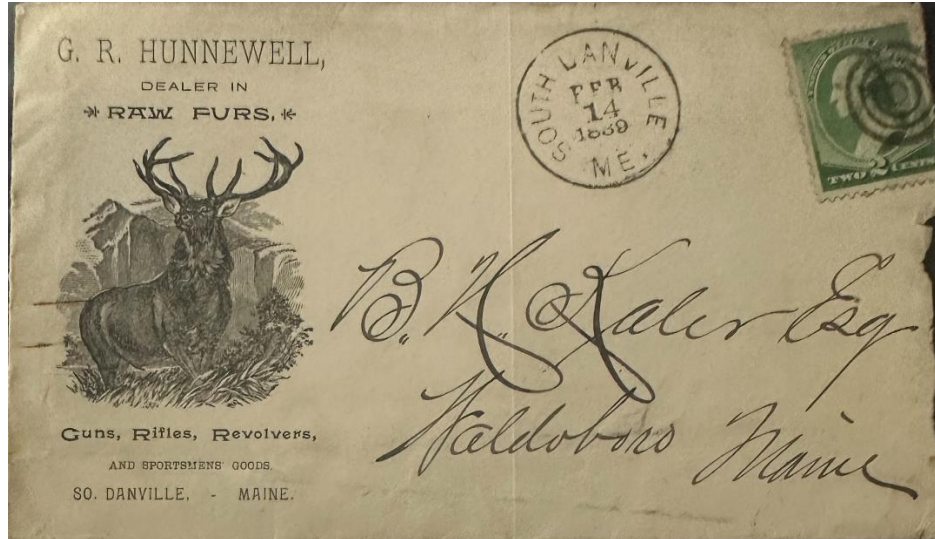 G. R. HUNNEWELL,
DEALER IN
RAW FURS,
Guns, Rifles, Revolvers,
AND SPORTSMENS' GOODS.
SO. DANVILLE, - MAINE.
SOUTH DANVILLE
FEB
14
1889
ME.
TWO 2 CENTS
B. H. Kaler Esq
Waldoboro Maine